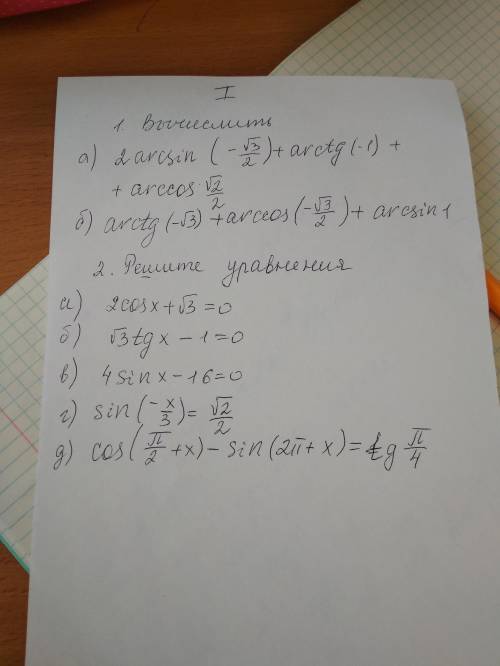 I
1. Вычислить
а) 2 arcsin (-√3/2) + arctg (-1) +
+ arccos √2/2
б) arctg (-√3) + arccos (-√3/2) + arcsin 1
2. Решите уравнения
а) 2cosx + √3 = 0
б) √3 tgx - 1 = 0
в) 4 sin x - 16 = 0
г) sin (-x/3) = √2/2
д) cos (π/2 + x) - sin (2π + x) = tg π/4